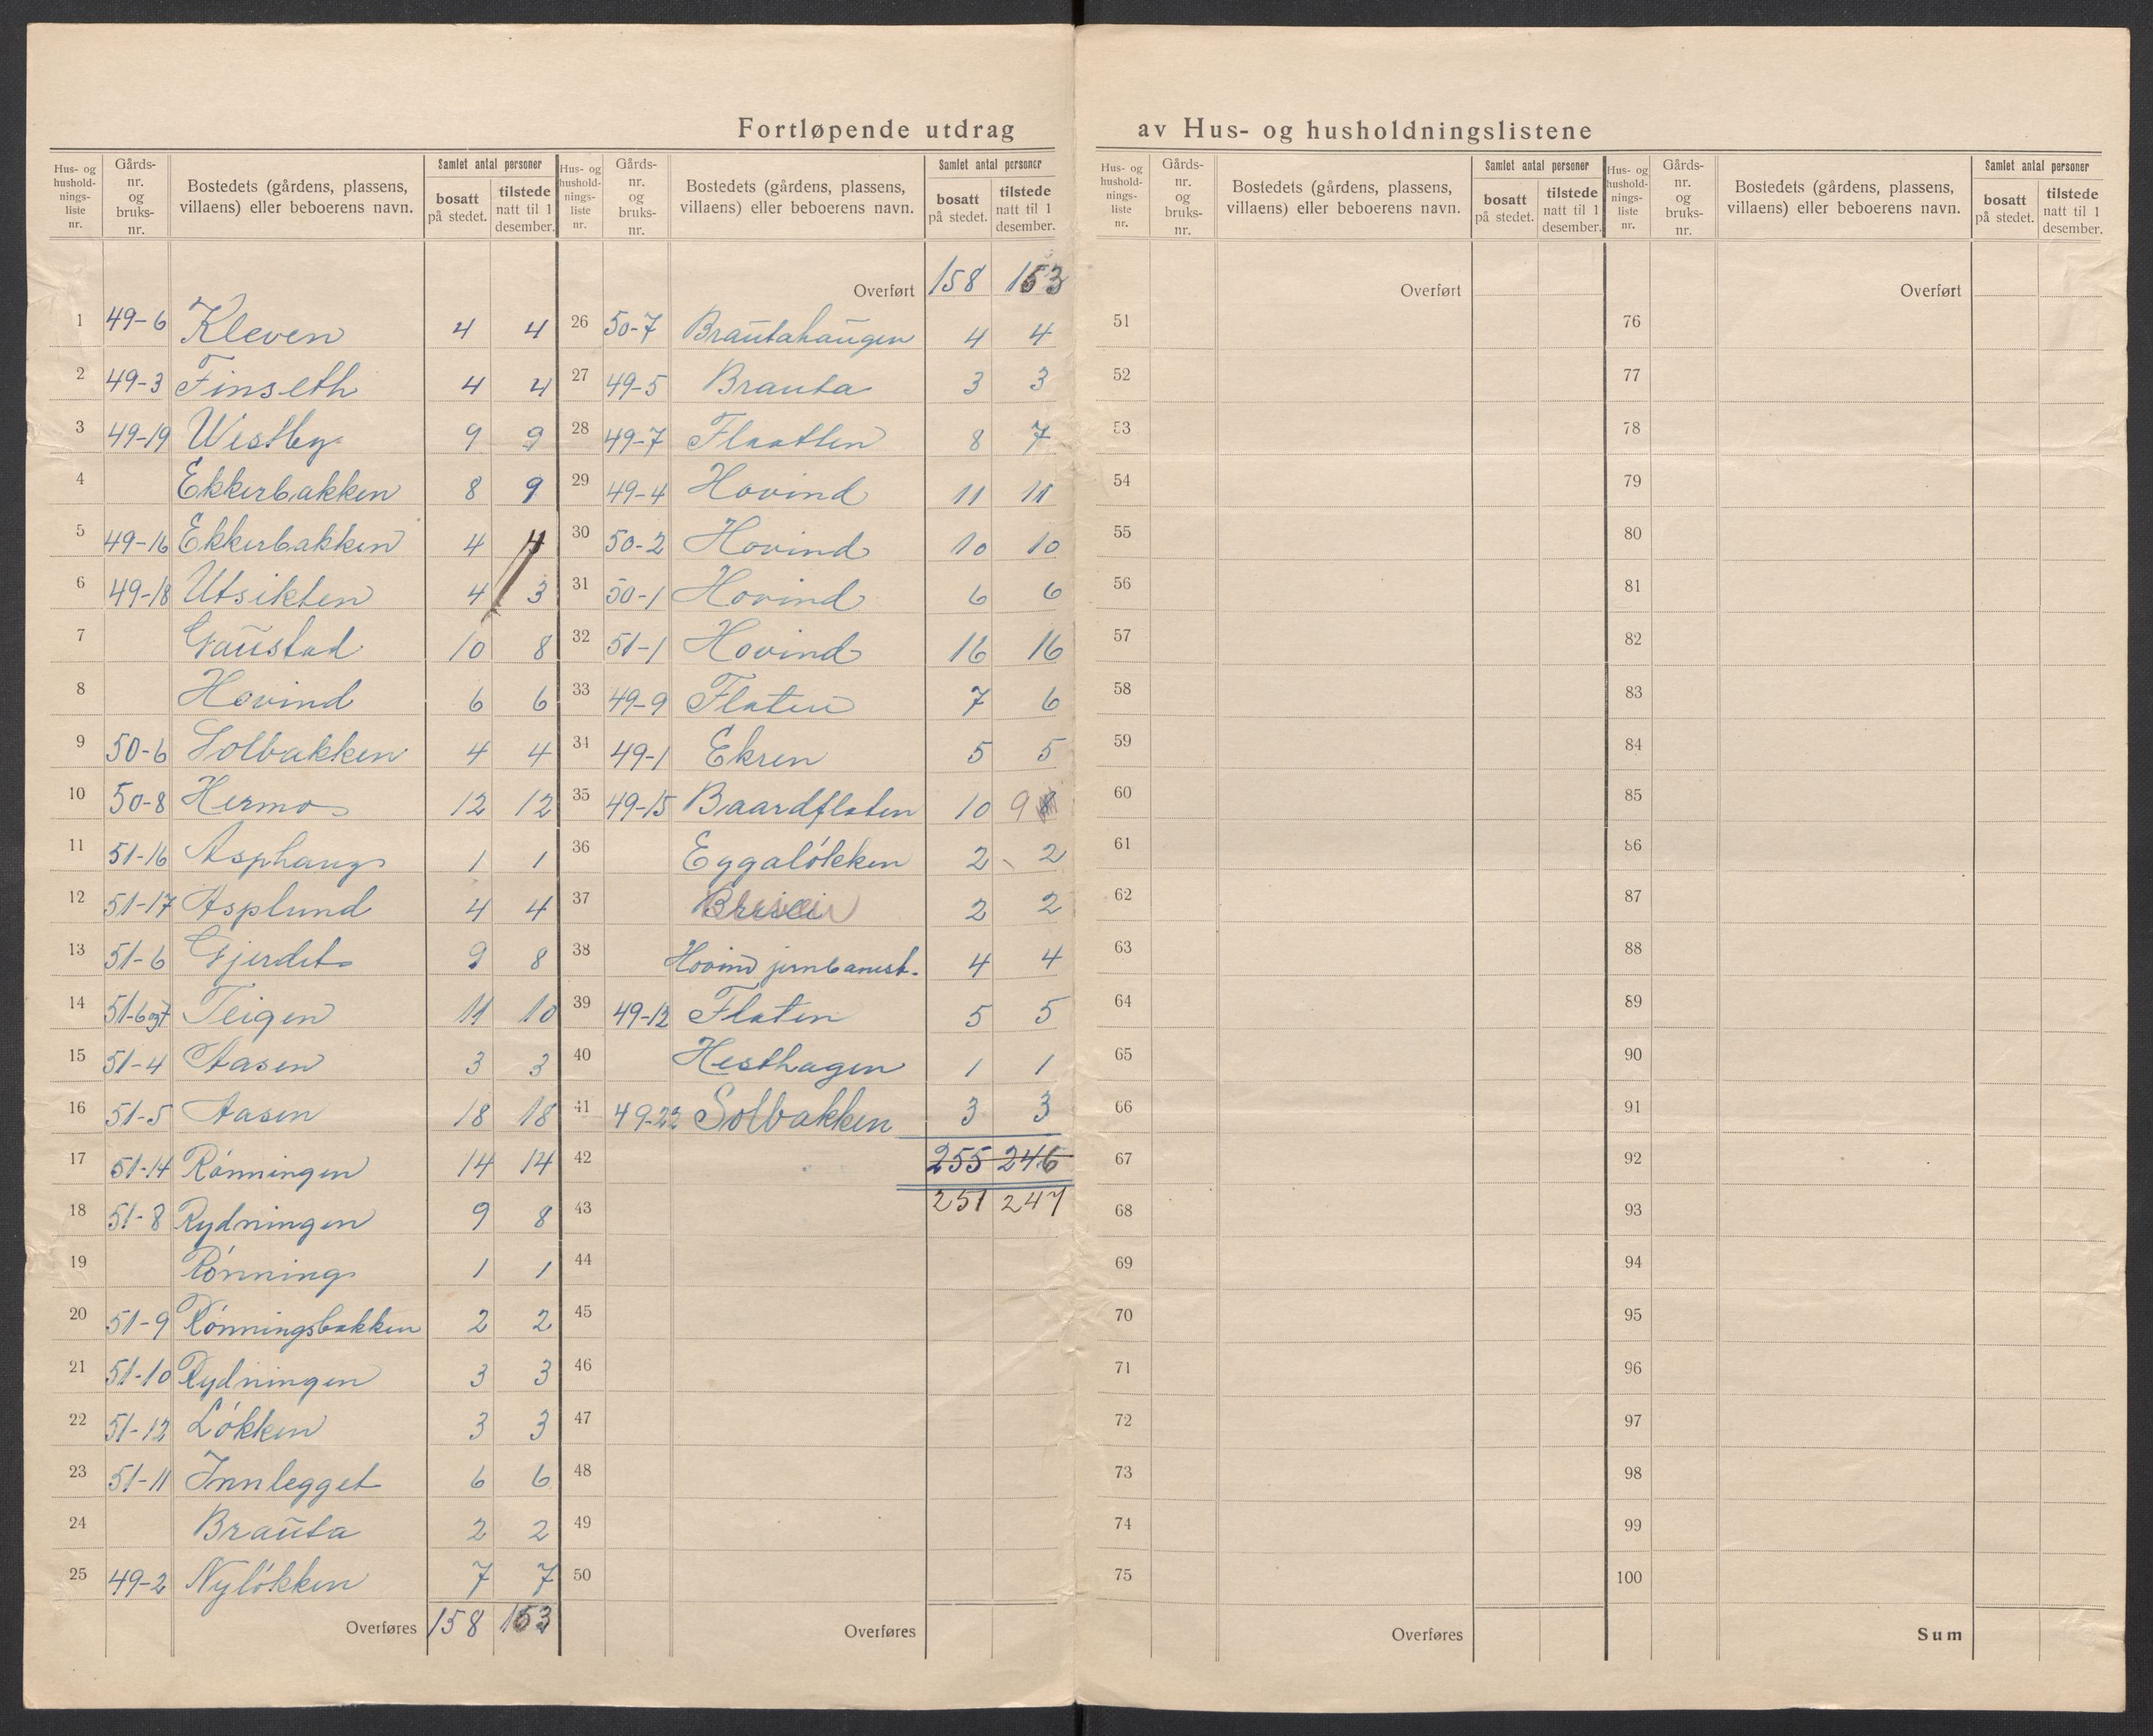 Fortløpende utdrag av Hus- og husholdningslistene
Hus- og husholdnings-liste nr. Gårds-nr. og bruks-nr. Bostedets (gårdens, plassens, villaens) eller beboerens navn. Samlet antal personer bosatt på stedet. tilstede natt til 1 desember.
1 49-6 Kleven 4 4
2 49-3 Finseth 4 4
3 49-19 Westby 9 9
4 Ekkerbakken 8 9
5 49-16 Ekkerbakken 4 4
6 49-18 Utsikten 4 3
7 Gaustad 10 8
8 Hovind 6 6
9 50-6 Solbakken 4 4
10 50-8 Hermo 12 12
11 51-16 Asphaug 1 1
12 51-17 Asplund 4 4
13 51-6 Gjerdet 9 8
14 51-6og7 Teigen 11 10
15 51-4 Aasen 3 3
16 51-5 Aasen 18 18
17 51-14 Rónningen 14 14
18 51-8 Rydningen 9 8
19 Rónning 1 1
20 51-9 Rónningsbakken 2 2
21 51-10 Rydningen 3 3
22 51-12 Lókken 3 3
23 51-11 Innlegget 6 6
24 Brauta 2 2
25 49-2 Nylókken 7 7
Overføres 158 153
Hus- og husholdnings-liste nr. Gårds-nr. og bruks-nr. Bostedets (gårdens, plassens, villaens) eller beboerens navn. Samlet antal personer bosatt på stedet. tilstede natt til 1 desember.
Overført 158 153
26 50-7 Brautahaugen 4 4
27 49-5 Brauta 3 3
28 49-7 Flaatten 8 7
29 49-4 Hovind 11 11
30 50-2 Hovind 10 10
31 50-1 Hovind 6 6
32 51-1 Hovind 16 16
33 49-9 Flaten 7 6
34 49-1 Ekren 5 5
35 49-15 Baardflaten 10 9
36 Eggalókken 2 2
37 2 2
38 Hovind jernbanest. 4 4
39 49-12 Flaten 5 5
40 Hesthagen 1 1
41 49-22 Solbakken 3 3
42 255 246
43 251 247
44
45
46
47
48
49
50
Overføres
Hus- og husholdnings-liste nr. Gårds-nr. og bruks-nr. Bostedets (gårdens, plassens, villaens) eller beboerens navn. Samlet antal personer bosatt på stedet. tilstede natt til 1 desember.
Overført
51
52
53
54
55
56
57
58
59
60
61
62
63
64
65
66
67
68
69
70
71
72
73
74
75
Overføres
Hus- og husholdnings-liste nr. Gårds-nr. og bruks-nr. Bostedets (gårdens, plassens, villaens) eller beboerens navn. Samlet antal personer bosatt på stedet. tilstede natt til 1 desember.
Overført
76
77
78
79
80
81
82
83
84
85
86
87
88
89
90
91
92
93
94
95
96
97
98
99
100
Sum